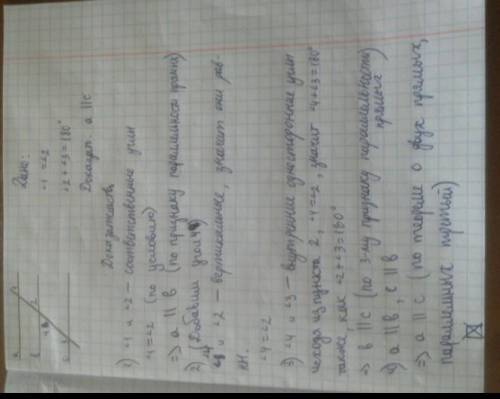 a
b
c
Дано:
∠1 = ∠2
∠2 + ∠3 = 180°
Доказать: a || c
Доказательств
1) ∠1 и ∠2 – соответственные углы
∠1 = ∠2 (по условию)
=> a || b (по признаку параллельности прямых)
2) (Добавим угол 4)
∠4 и ∠2 – вертикальные, значит они рав-
ны.
∠4 = ∠2
3) ∠4 и ∠3 – внутренние односторонние углы
исходя из пункта 2, ∠4 = ∠2, значит ∠4 + ∠3 = 180°
также, как ∠2 + ∠3 = 180°
=> b || c (по 3-му признаку параллельности прямых)
4) a || b, c || b
=> a || c (по теореме о двух прямых,
параллельных третьей)